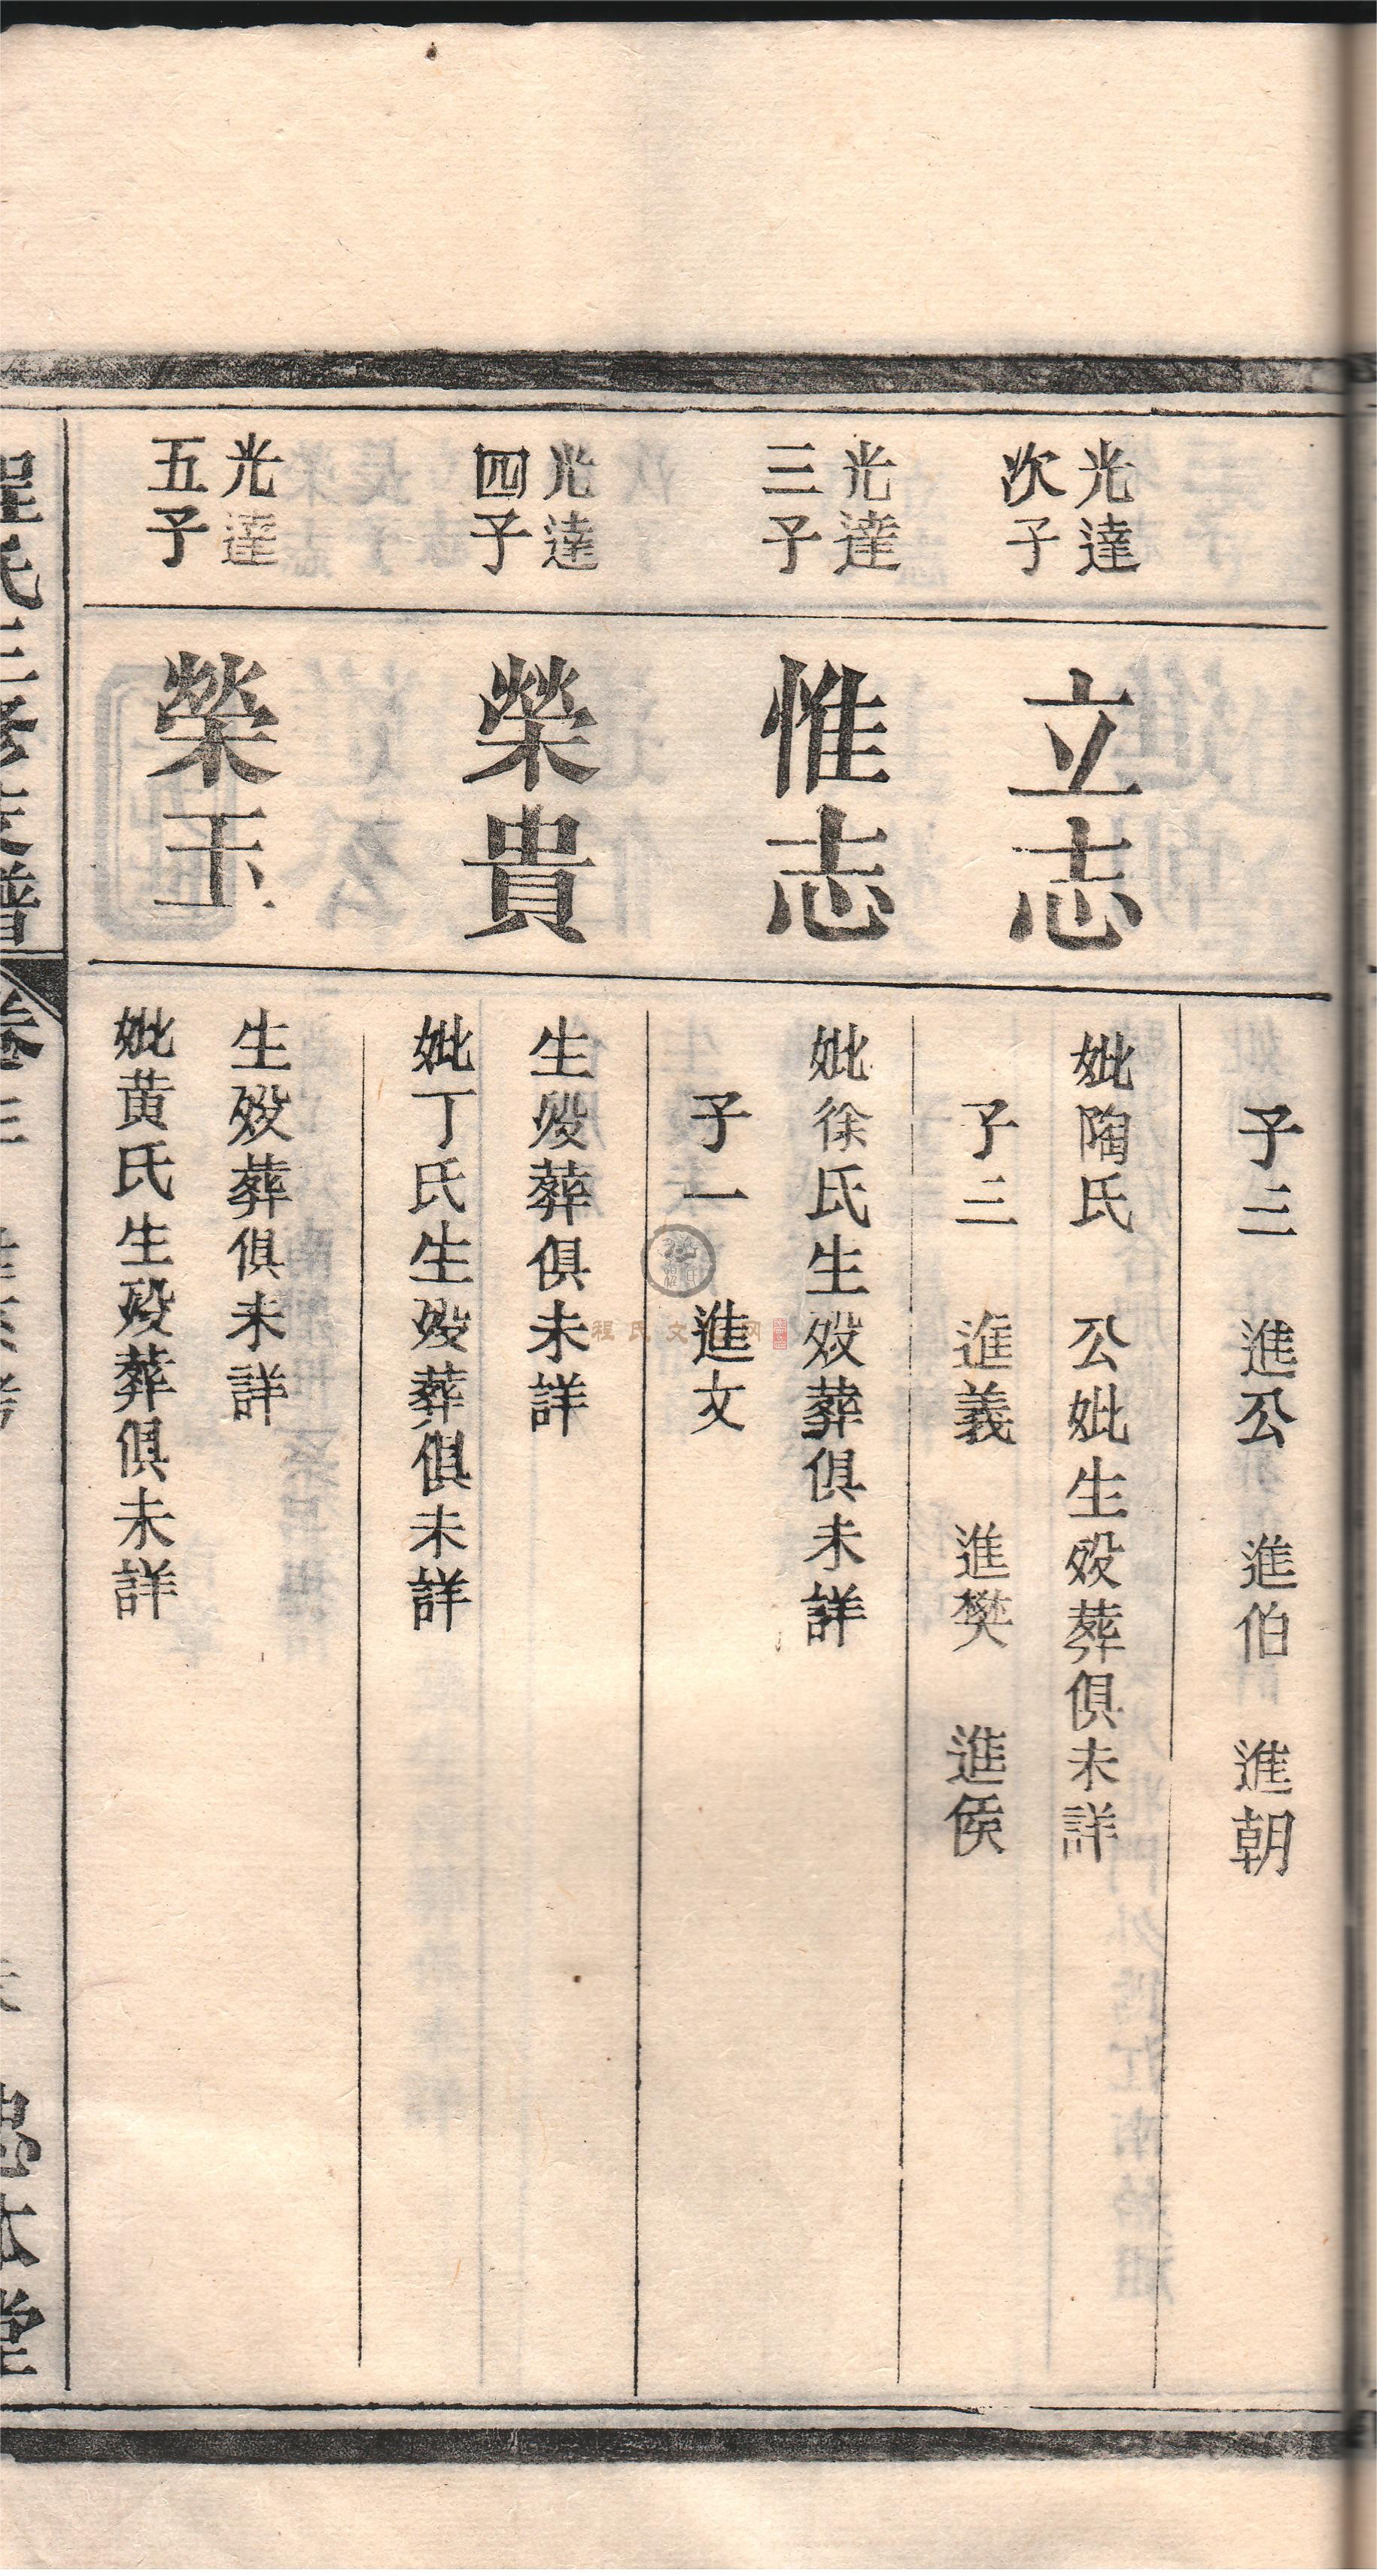 子三 進公 進伯 進朝
光達
次子
立志
妣陶氏 公妣生殁葬俱未詳
子三 進義 進樊 進侯
光達
三子
惟志
妣徐氏生殁葬俱未詳
子一 進文
光達
四子
榮貴
生殁葬俱未詳
妣丁氏生殁葬俱未詳
光達
五子
榮玉
生殁葬俱未詳
妣黄氏生殁葬俱未詳
程氏三修支譜
卷三